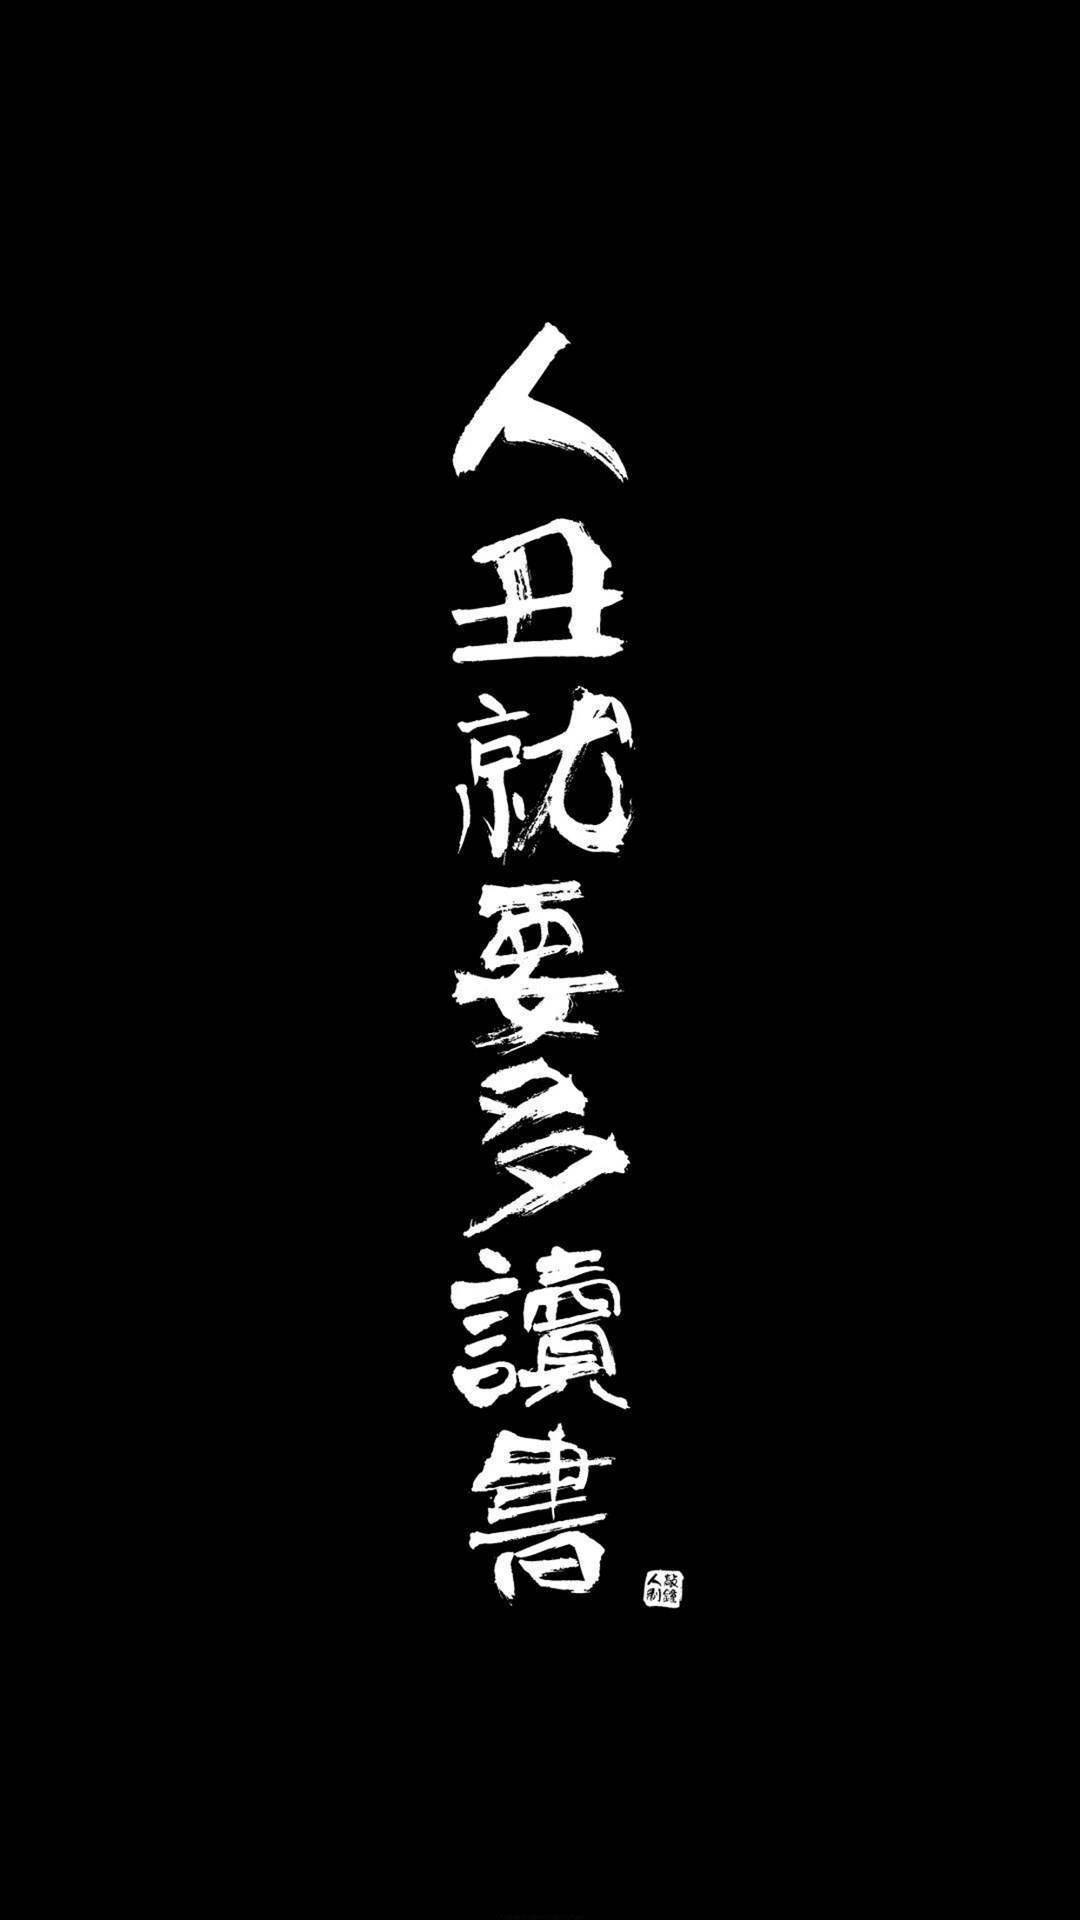 人丑就要多讀書
敲鐘
人制